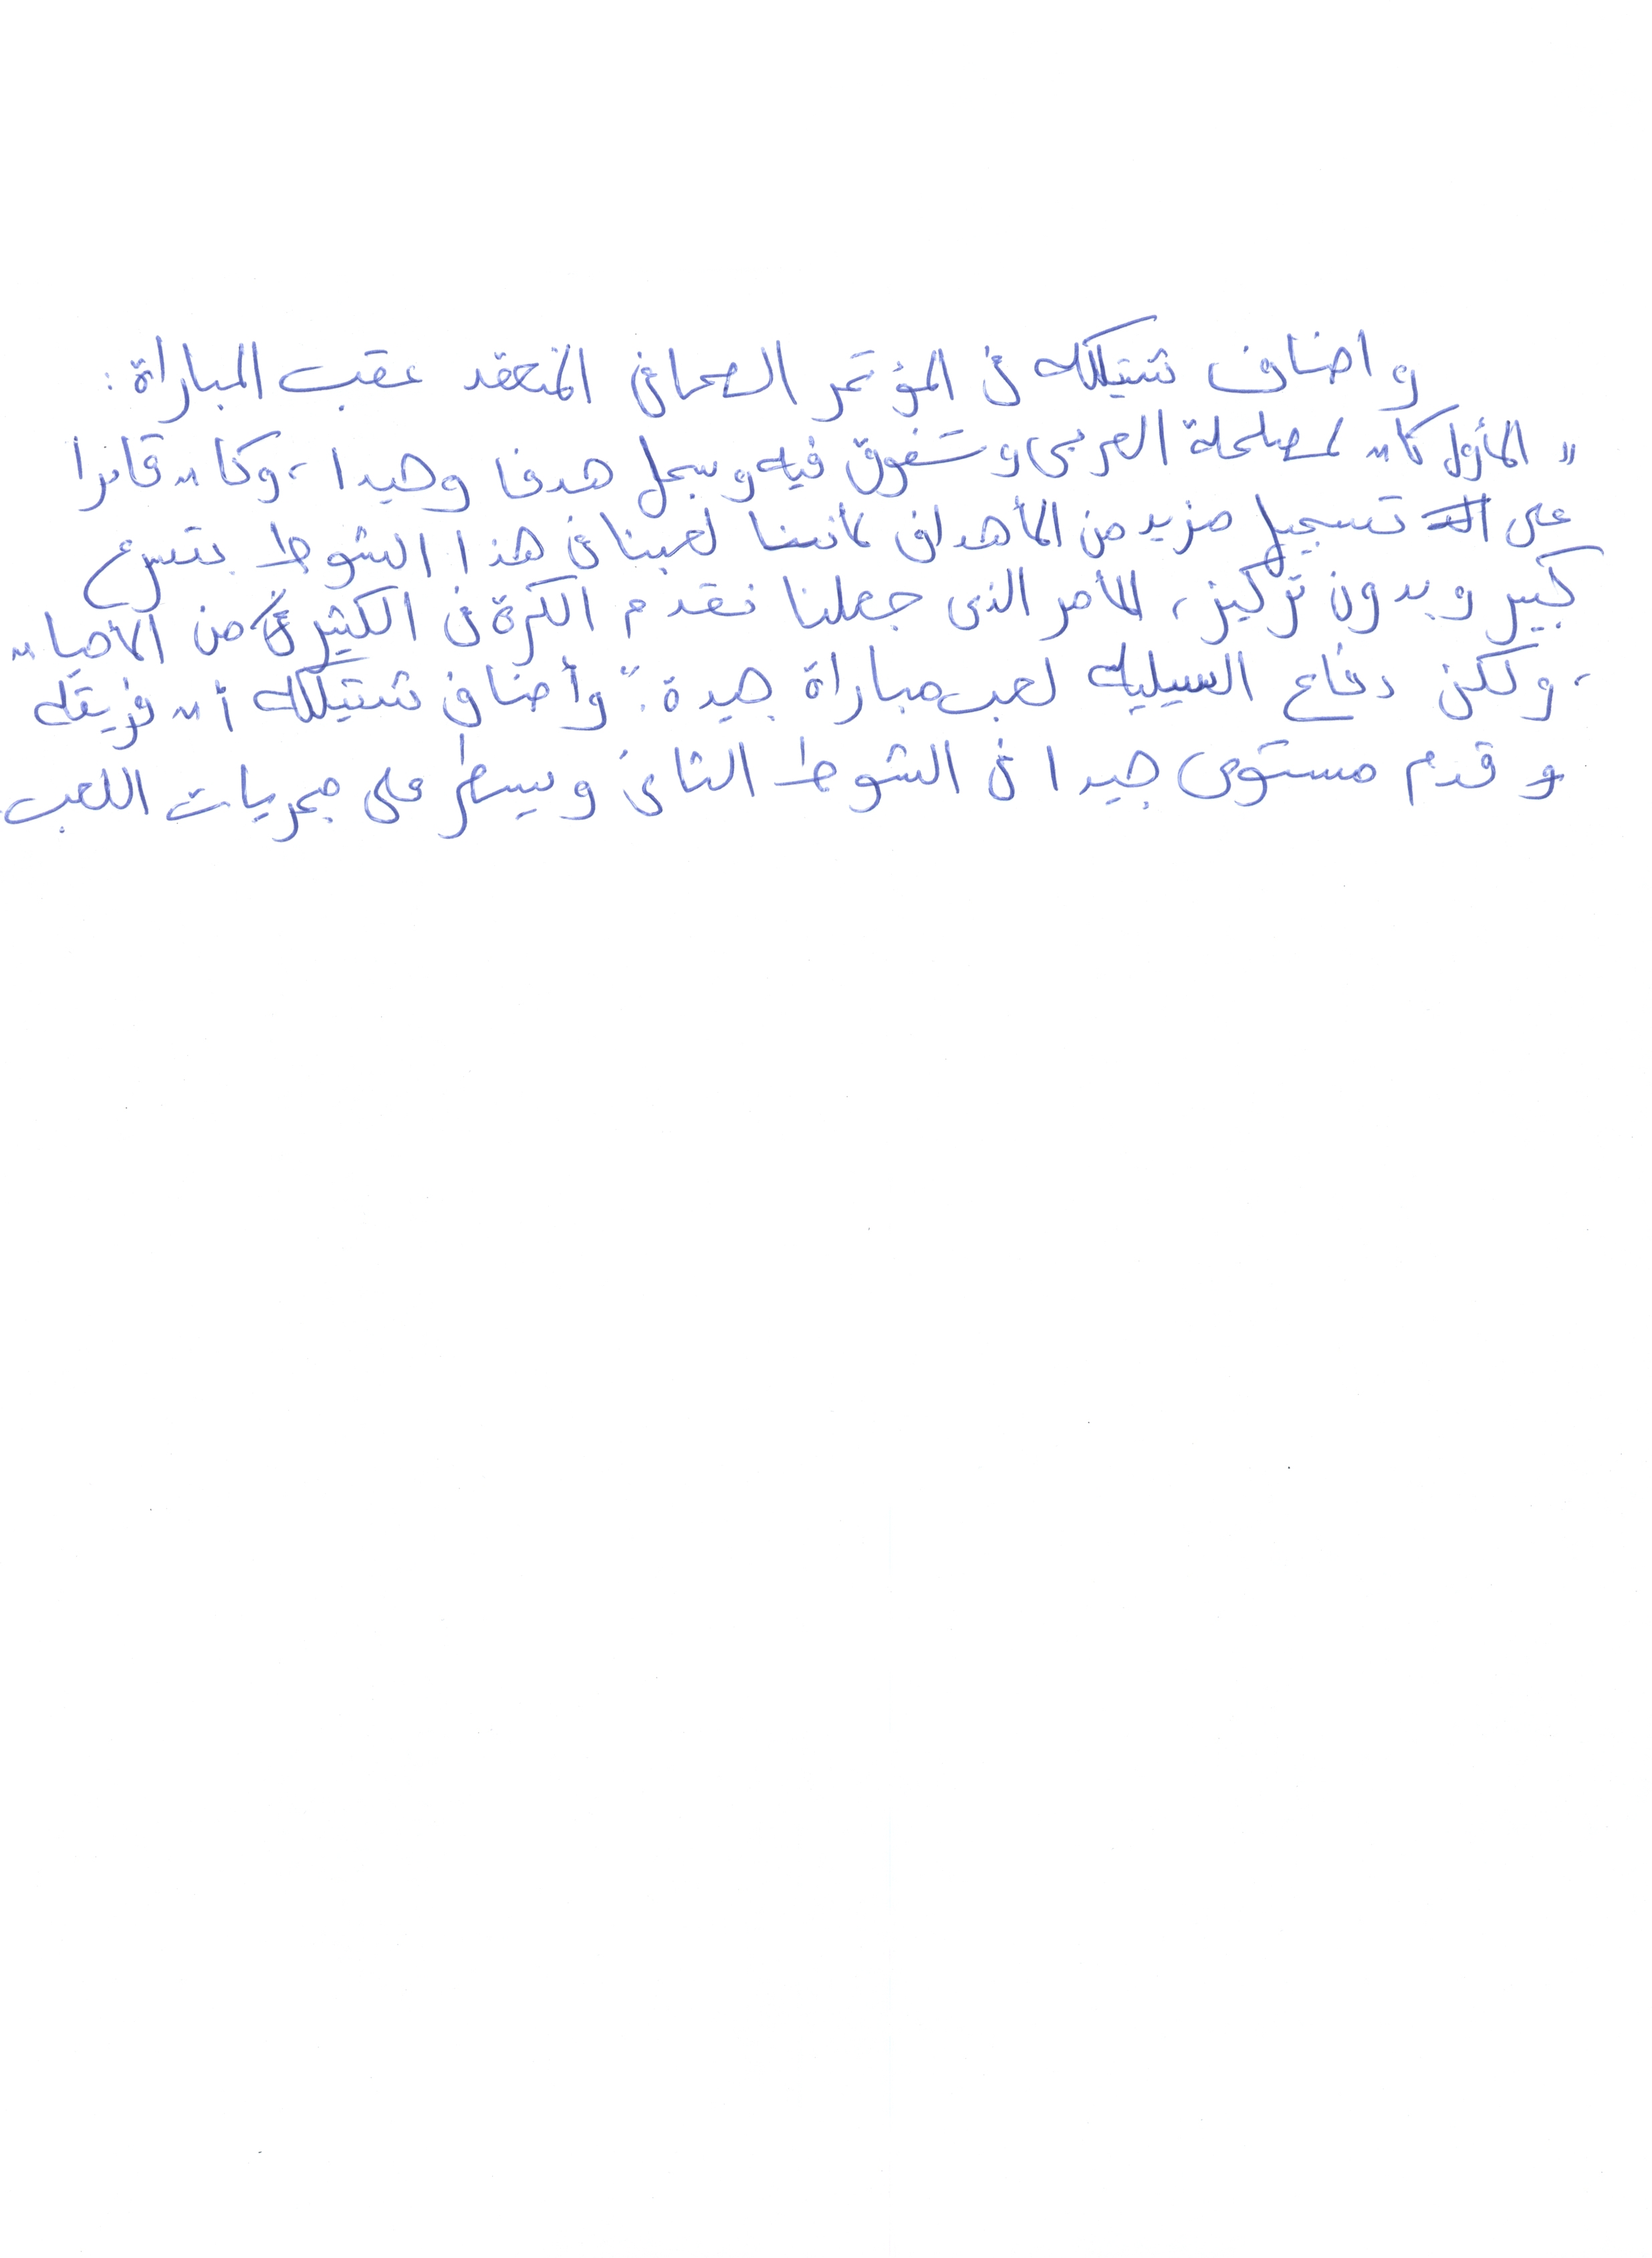 واضاف شتيلكه فى المؤتمر الصحافى المنعقد عقب المباراة :
" الأول كان لمصلحة العربى وتفوق فيه وسجل هدفا وحيدا ، وكان قادرا
على تسجيل مزيد من الأهداف لأننا لعبنا فى هذا الشوط بتسرع
كبير وبدون تركيز ، الأمر الذى جعلنا نقدم الكرة فى الكثير من الأحيان
، ولكن دفاع السيلية لعب مباراة جيدة ." وأضاف شتيلكه أن فريقه
قدم مستوى جيدا فى الشوط الثانى وسيطر على مجريات اللعب